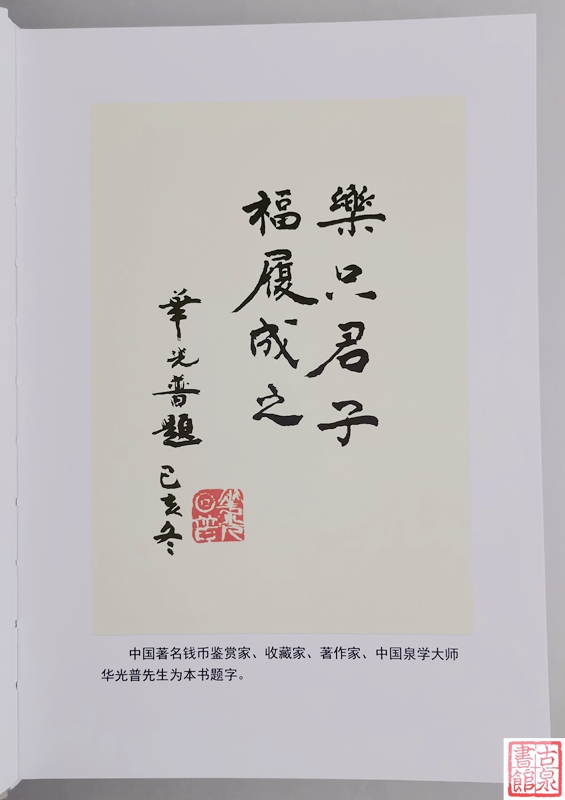 樂只君子
福履成之
華光普題
己亥冬
華光普印
中国著名钱币鉴赏家、收藏家、著作家、中国泉学大师
华光普先生为本书题字。
古泉書館